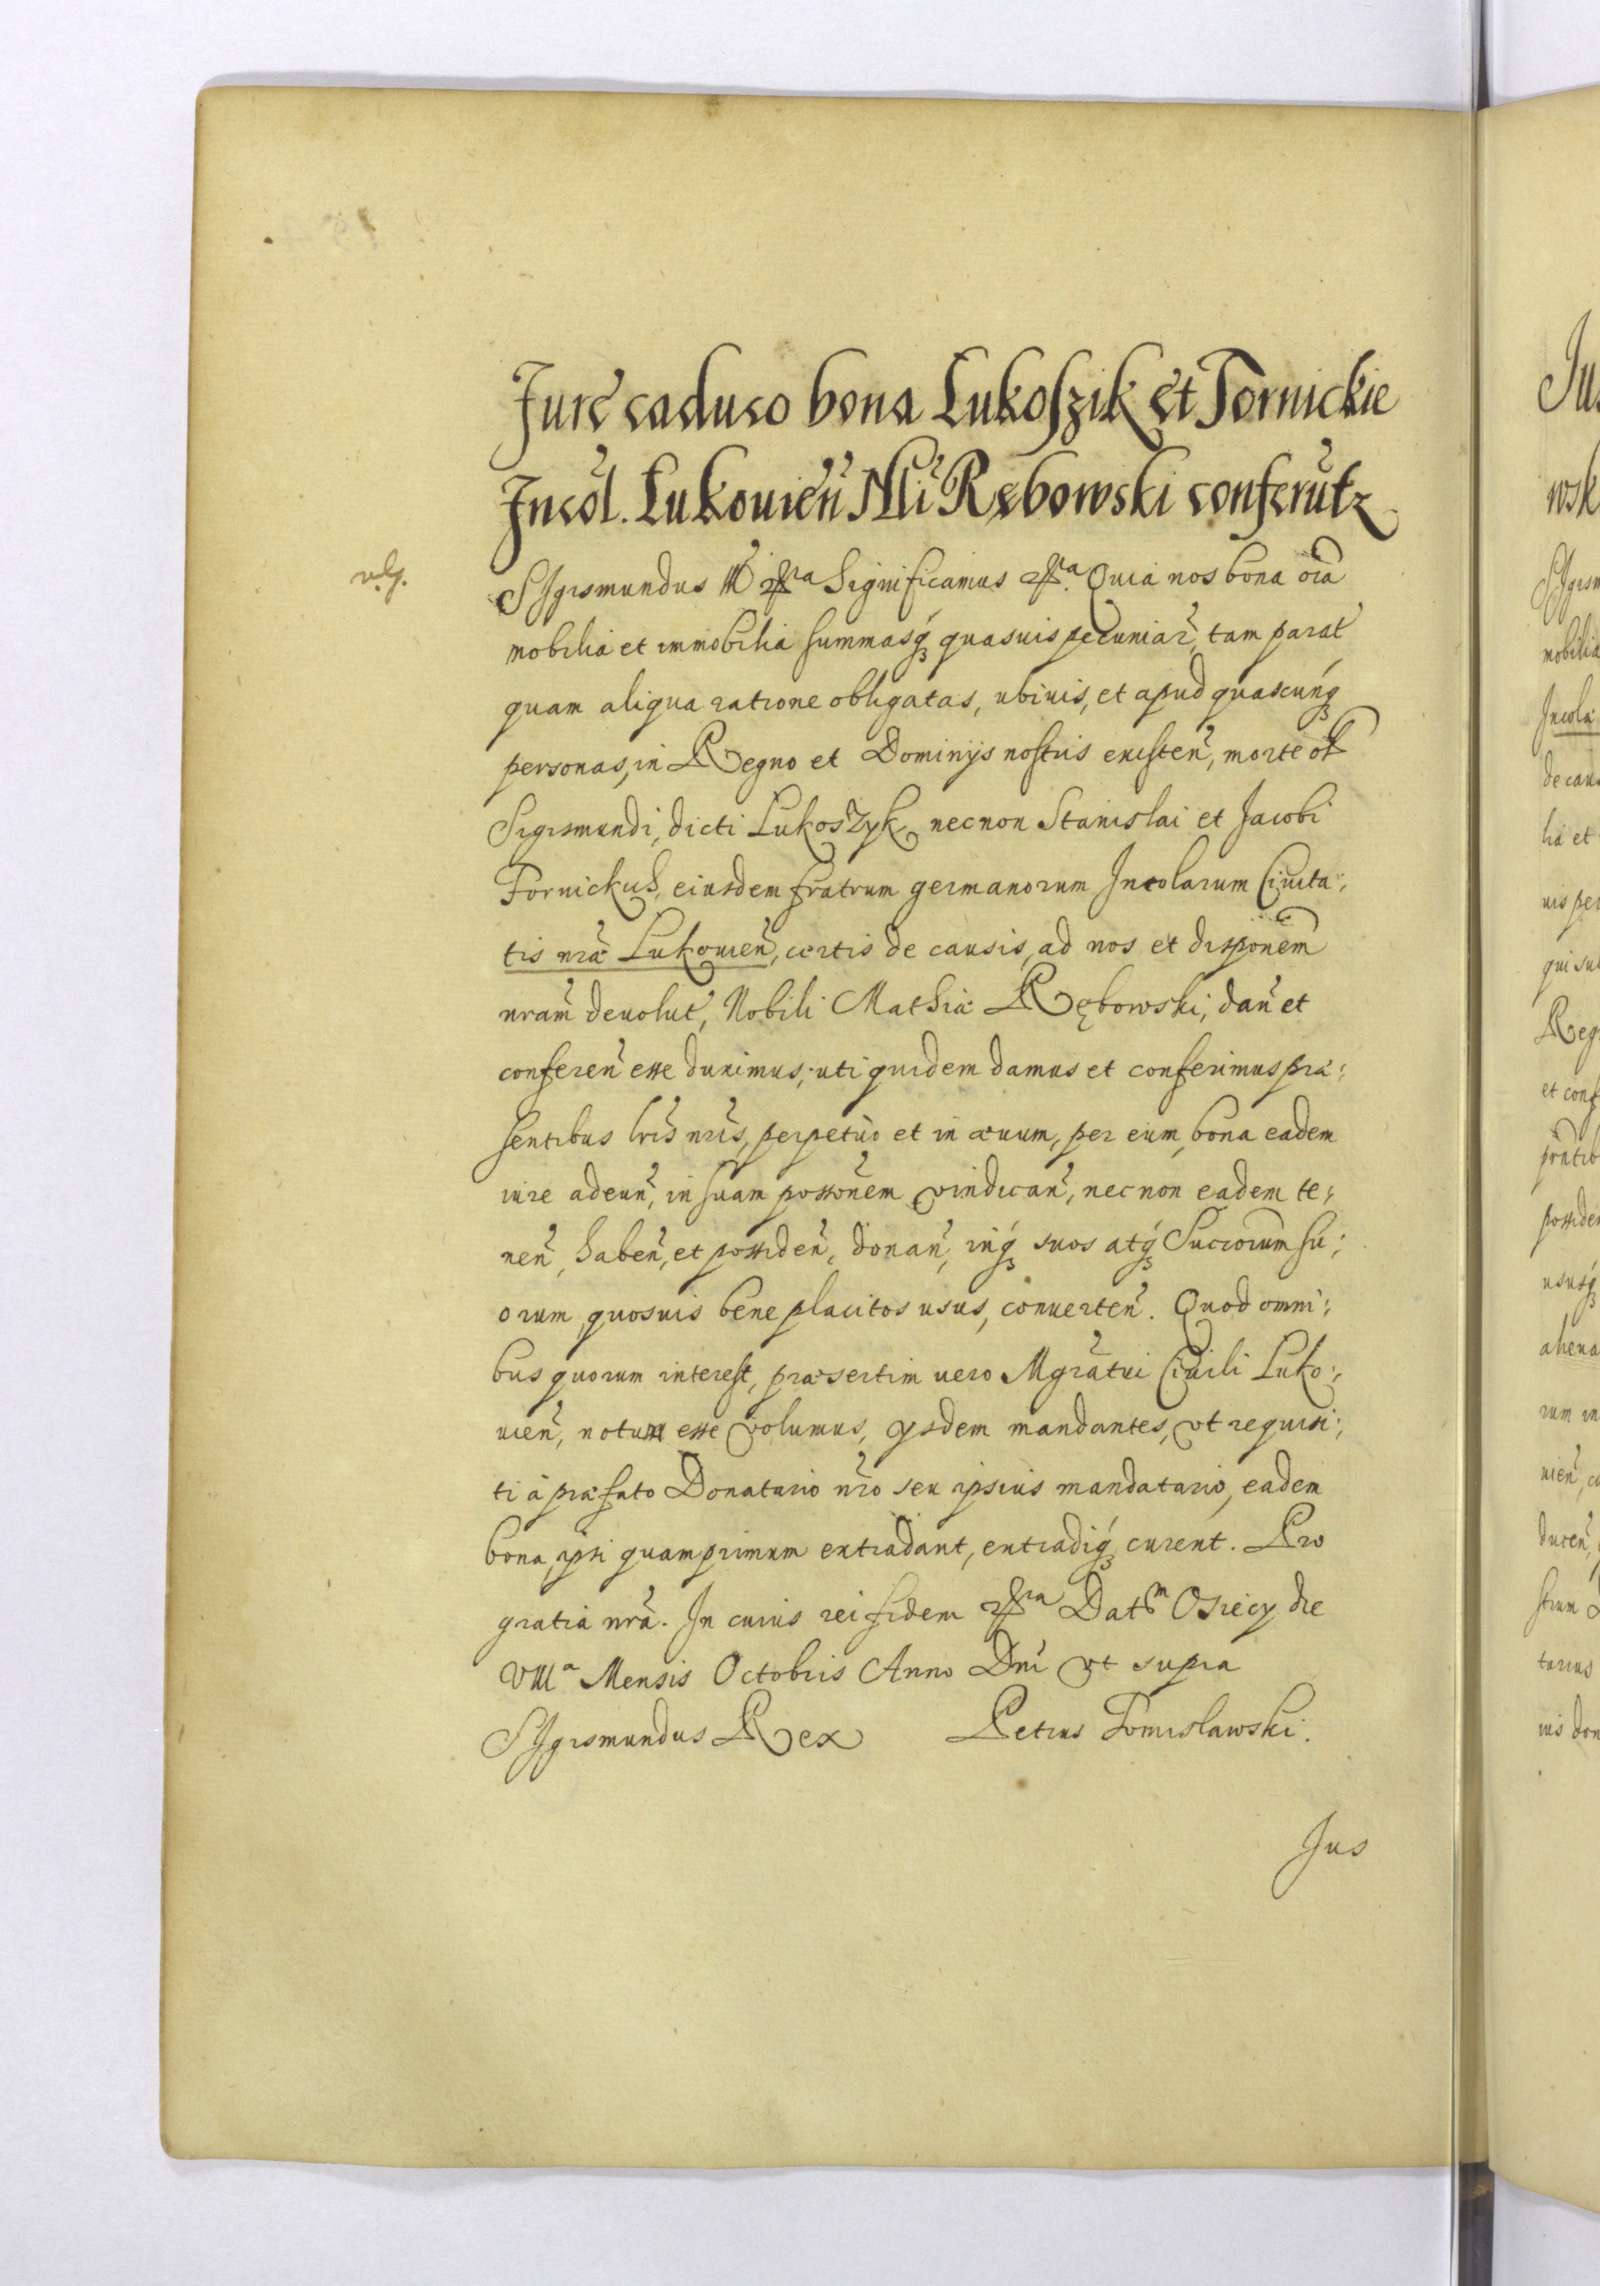 Jure caduco bona Lukoszik et Tornickie
Incol. Lukouien Nli Rębowski conferutz
Sigismundus III &ra Significamus &ra. Quia nos bona oia
mobilia et immobilia summasq quasuis pecuniar, tam parat
quam aliqua ratione obligatas, ubiuis, et apud quascunq
personas, in Regno et Dominijs nostris existen, morte ol
Sigismundi, dicti Lukoszyk necnon Stanislai et Jacobi
Tornickich, eiusdem fratrum germanorum Incolarum Ciuita:
tis nræ Lukouien, certis de causis, ad nos et disponem
nram deuolut, Nobili Mathiæ Rębowski, dan et
conferen esse duximus; uti quidem damus et conferimus præ:
sentibus lris nris, perpetuo et in æuum, per eum, bona eadem
iure adeun, in suam possonem vindican, necnon eadem te:
nen, haben, et possiden, donan, inq suos atq Succorum su:
orum, quosuis bene placitos usus, conuerten. Quod omni:
bus quorum interest, præsertim uero Mgratui Ciuili Luko:
uien, notum esse volumus, ijsdem mandantes, vt requisi:
ti à præfato Donatario nro seu ipsius mandatario, eadem
bona, ipsi quamprimum extradant, extradiq curent. Pro
gratia nra. In cuius rei fidem &ra Datm Osiecy die
VIIIa Mensis Octobris Anno Dni vt supra
Sigismundus Rex Petrus Tomislawski.
Jus